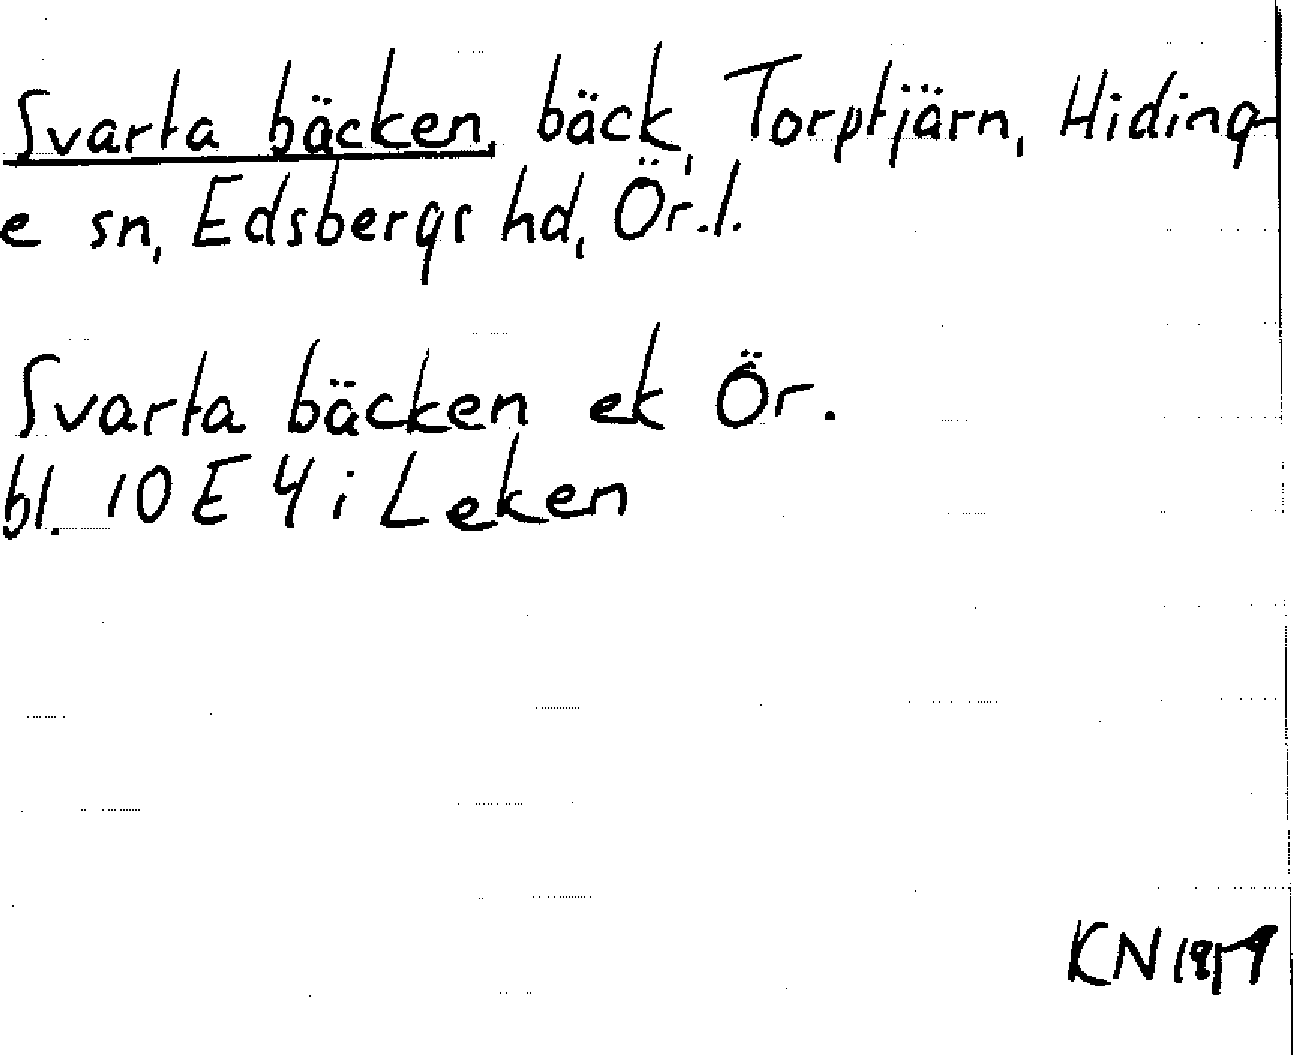 Svarta bäcken, bäck, Torptjärn, Hiding-
e sn, Edsbergs hd, Ör.l.
Svarta bäcken ek Ör.
bl. 10 E 4 i Leken
KN